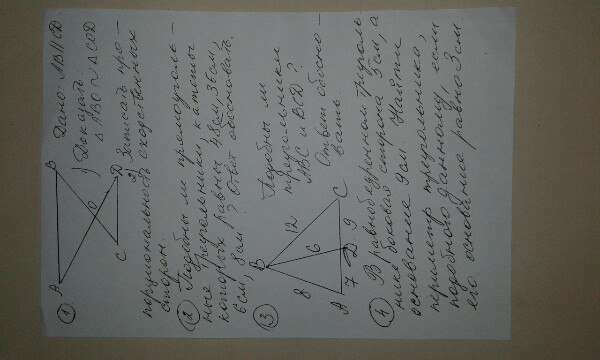 ① A B O C D
Дано: AB∥CD
1) Доказать
△ABO ~ △COD
2) Записать про-
порциональность сходственных
сторон.
② Подобны ли прямоуголь-
ные треугольники, катеты
которых равны 48см, 36см,
6см, 8см? Ответ обосновать.
③ A B C D 8 12 6 7 9
Подобны ли
треугольники
ABC и BCD?
Ответ обосно-
вать.
④ В равнобедренном треуголь
нике боковая сторона см, а
основание 9см Найти
периметр треугольника,
подобного данному, если
его основание равно 3см